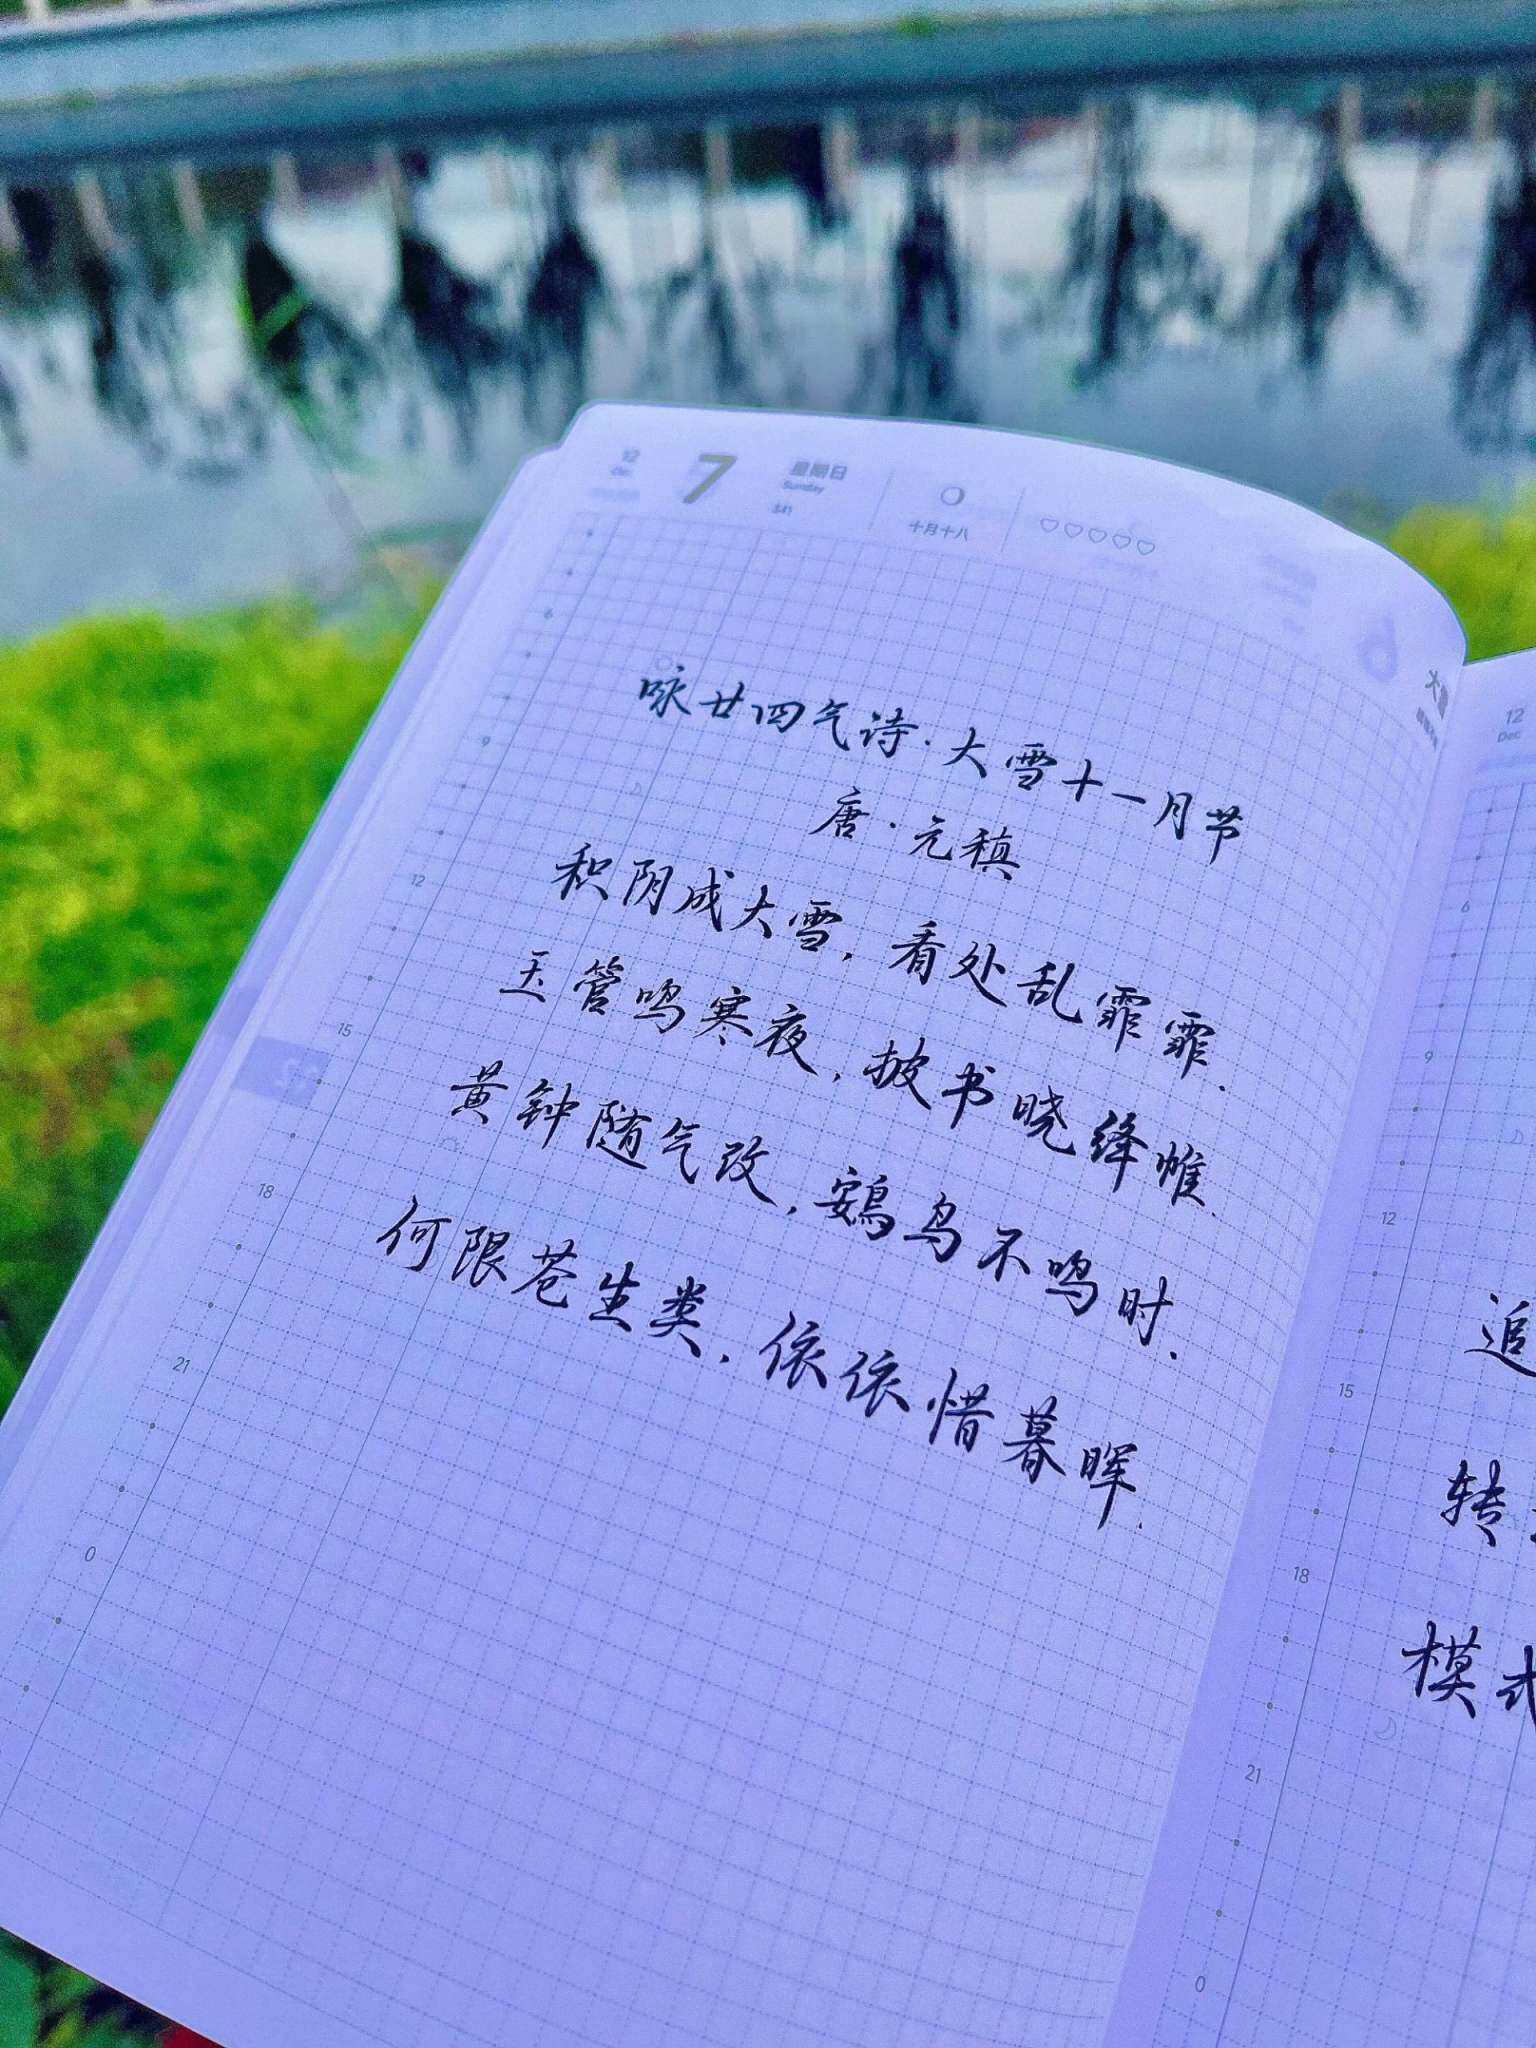 12
Dec
7
星期日
Sunday
341
十月十八
咏廿四气诗·大雪十一月节
唐·元稹
积阴成大雪，看处乱霏霏.
玉管鸣寒夜，披书晓绛帷.
黄钟随气改，鴳鸟不鸣时.
何限苍生类，依依惜暮晖.
6
9
12
15
18
21
0
12
Dec
追
转
模式
6
9
12
15
18
21
0